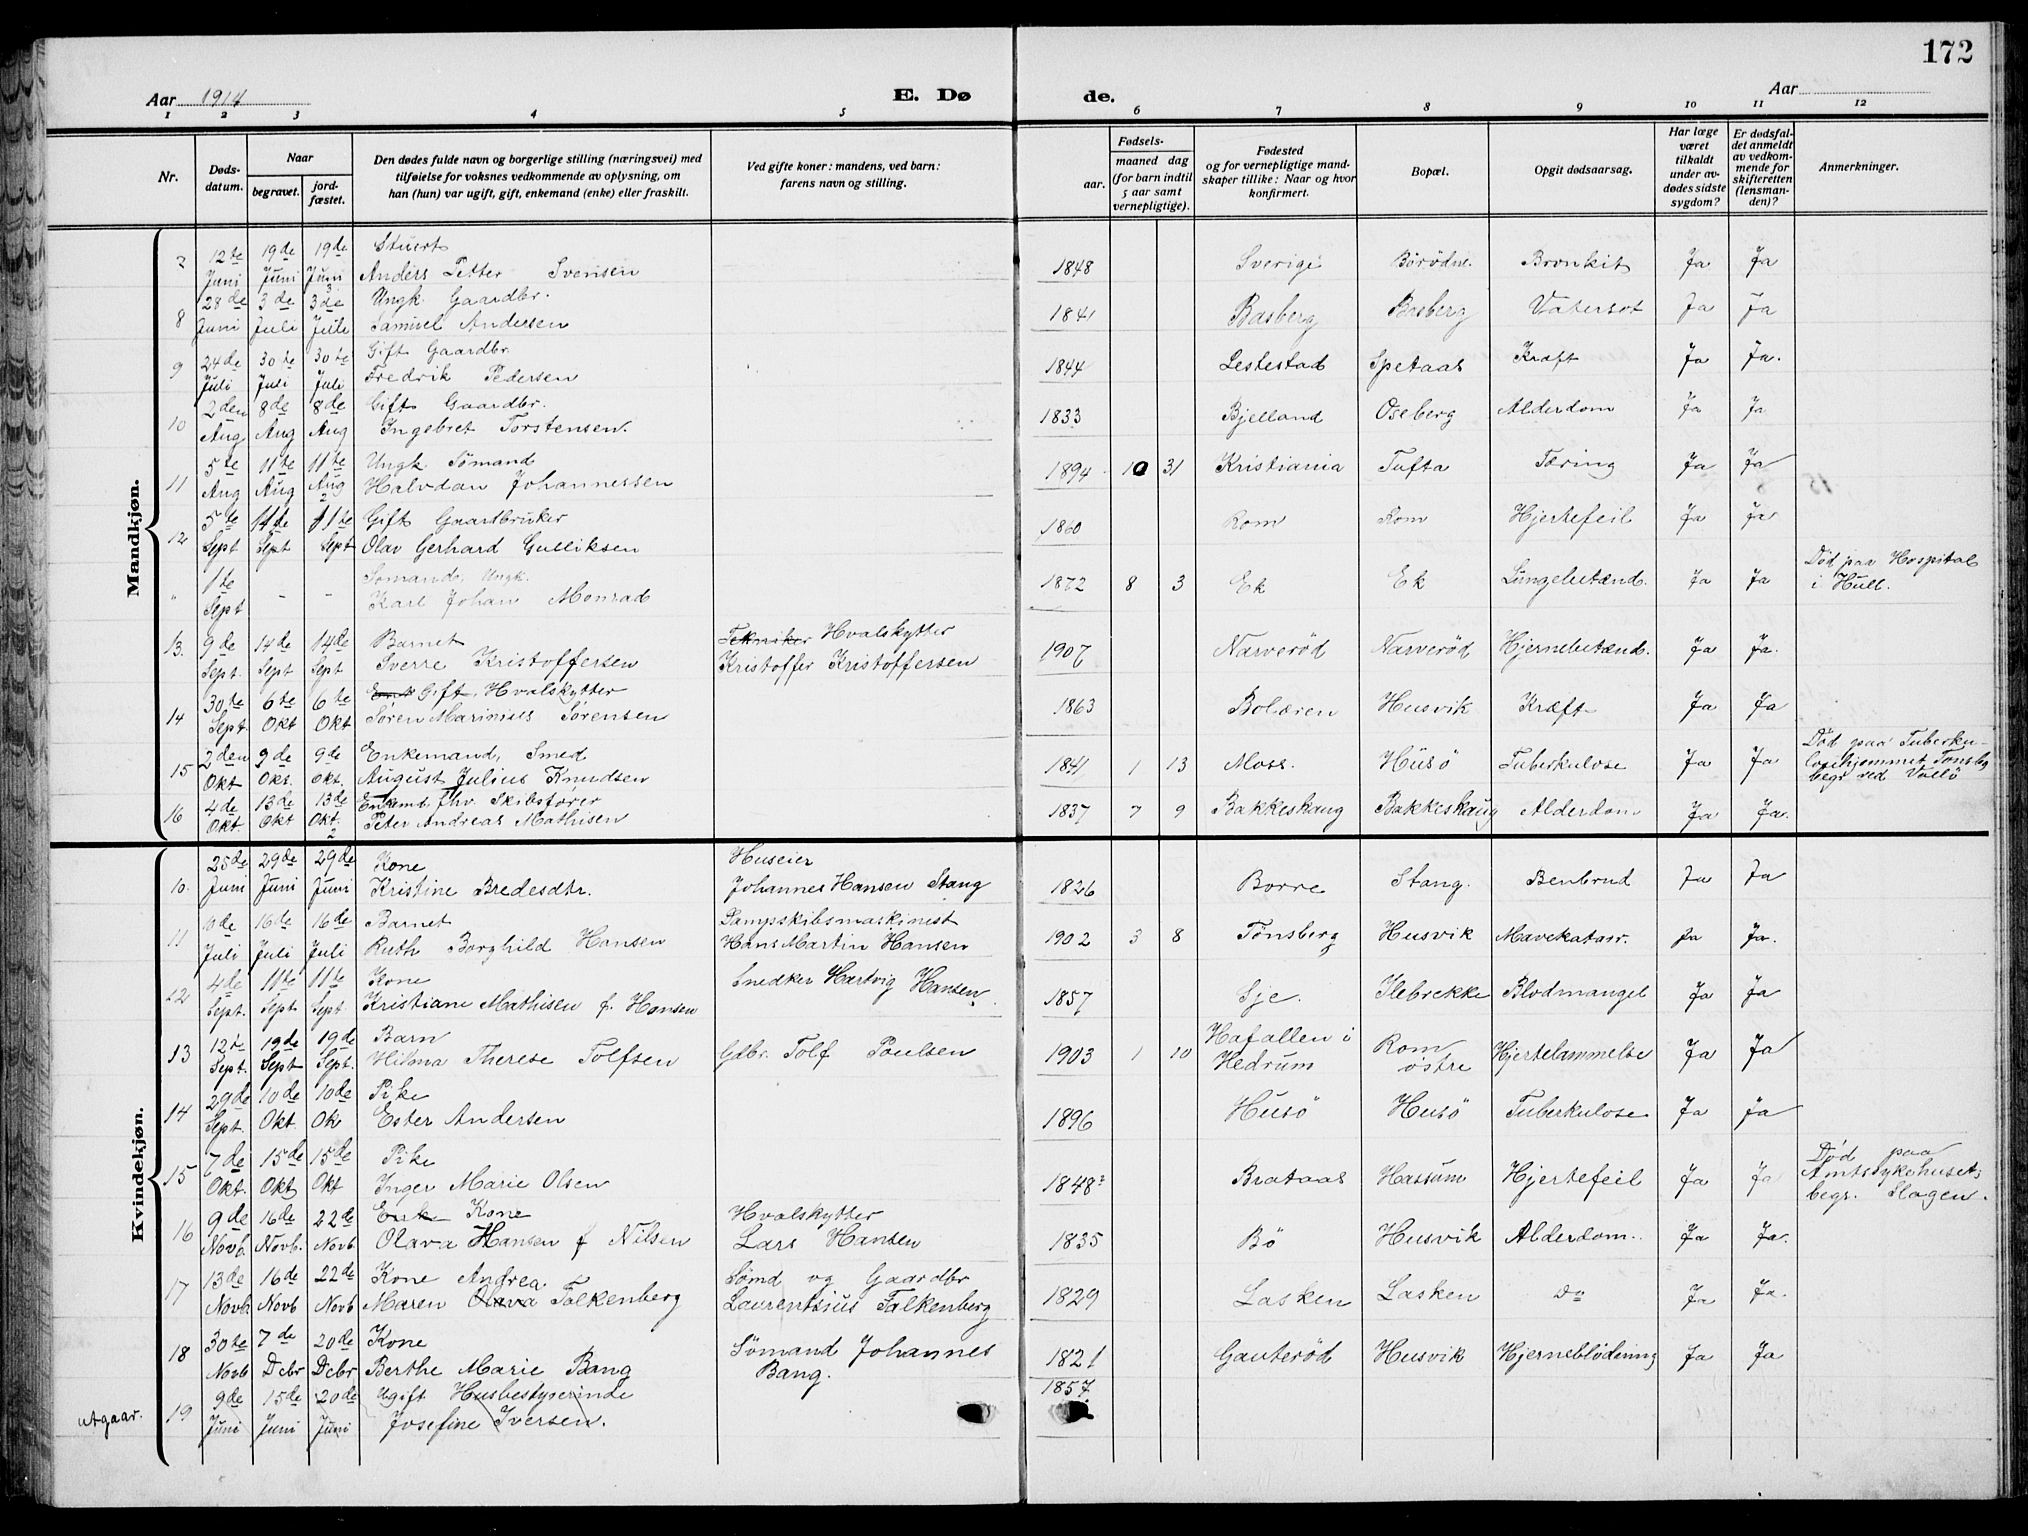 172
Aar 1914
E. Dø
de.
Aar
1 2 3 4 5 6 7 8 9 10 11 12
Nr.
Døds-
datum.
Naar
begravet.
jord-
fæstet.
Den dødes fulde navn og borgerlige stilling (næringsvei) med
tilføielse for voksnes vedkommende av oplysning, om
han (hun) var ugift, gift, enkemand (enke) eller fraskilt.
Ved gifte koner: mandens, ved barn:
farens navn og stilling.
Fødsels-
aar.
maaned dag
(for barn indtil
5 aar samt
vernepligtige).
Fødested
og for vernepligtige mand-
skaper tillike: Naar og hvor
konfirmert.
Bopæl.
Opgit dødsaarsag.
Har læge
været
tilkaldt
under av-
dødes sidste
sygdom?
Er dødsfal-
det anmeldt
av vedkom-
mende for
skifteretten
(lensman-
den)?
Anmerkninger.
Mandkjøn.
12te 19de 19de Stuert
Juni Juni Juni Anders Petter Svensen 1848 Sverige Bronkit Ja Ja
28de 3de 3de Ungk. Gaardbr.
8 Juni Juli Juli Samuel Andersen 1841 Basberg Basberg Vatersot Ja Ja
24de 30te 30te Gift Gaardbr.
9 Juli Juli Juli Fredrik Pedersen 1844 Lestestad Spetaas Kræft Ja Ja.
2den 8de 8de Gift Gaardbr.
10 Aug Aug Aug Ingebret Torstensen. 1833 Bjelland Oseberg Alderdom Ja Ja
5te 11te 11te Ungk Sömand
11 Aug Aug Aug Halvdan Johannessen 1894 10 31 Kristiania Tufta Tæring Ja Ja
5te 11te 11te Gift Gaardbruker
12 Sept Sept Sept Olav Gerhard Gulliksen 1860 Rom Rom Hjertefeil Ja Ja
1te Sömand, Ungk.
" Sept - - Karl Johan Monrad 1872 8 3 Ek Ek Lungebetænd. Ja Ja Död paa Hospital
i Hull.
13. 9de 14de 14de Barnet Tekniker Hvalskytter
Sept. Sept Sept Sverre Kristoffersen Kristoffer Kristoffersen 1907 Narveröd Narveröd Hjernebetænd. Ja Ja.
30te 6te 6te Gift, Hvalskytter
14 Sept. Okt Okt Sören Marinius Sörensen 1863 Bolæren Husvik Kræft Ja Ja
2den 9de 9de Enkemand, Smed
15 Okt Okt. Okt. August Julius Knudsen 1841 1 13 Moss. Husö Tuberkulose Ja Ja Död paa Tuberku-
losehjemmet Tönsbg
begr ved Vallö
4de 13de 13de Enkemd. fhv. Skibsförer
16 Okt. Okt Okt. Peter Andreas Mathisen 1837 7 9 Bakkeskaug Bakkeskaug Alderdom Ja Ja.
Kvindekjøn.
25de 29de 29de Kone Huseier
10. Juni Juni Juni Kristine Bredesdtr. Johannes Hansen Stang 1826 Borre Stang. Benbrud Ja Ja
10de 16de 16de Barnet Dampskibsmaskinist
11 Juli Juli Juli Ruth Borghild Hansen Hans Martin Hansen 1902 3 8 Tönsberg Husvik Mavekatarr. Ja Ja.
4de 11te 11te Kone Snedker Hartvig Hansen
12 Sept. Sept Sept. Kristiane Mathisen f. Hansen 1857 Gje. Ilebrekke Blodmangel Ja Ja
12te 19de 19de Barn
13 Sept. Sept Sept. Hilma Therese Tolfsen Gdbr. Tolf Poulsen 1903 1 10 Hafallen i
Hedrum Rom
östre Hjertelammelse Ja Ja
29de 10de 10de Pike
14 Sept. Okt. Ok Ester Andersen 1896 Husö Husö Tuberkulose Ja Ja
7de 15de 15de Pike
15 Okt. Okt Okt Inger Marie Olsen 1848? Brataas Hassum Hjertefeil Ja Ja Död paa
Amtssykehuset;
begr. Slagen.
9de 16de 22de Enke Kone Hvalskytter
16 Novb. Novb. Novb. Olava Hansen f Nilsen Lars Hansen 1835 Bö Husvik Alderdom. Ja Ja.
13de 16de 22de Kone Andrea Sömd og Gaardbr
17 Novb. Novb Novb Maren Olava Falkenberg Laurentsius Falkenberg 1829 Lasken Lasken Do Ja Ja.
30te 7de 20de Kone Sömand Johannes
18 Novb Dcbr Dcbr Berthe Marie Bang Bang. 1821 Gauteröd Husvik Hjerneblödning Ja Ja
9de 15de 20de Ugift Husbestyrerinde 1857
utgaar. 19 Juni Juni Juni Josefine Iversen.